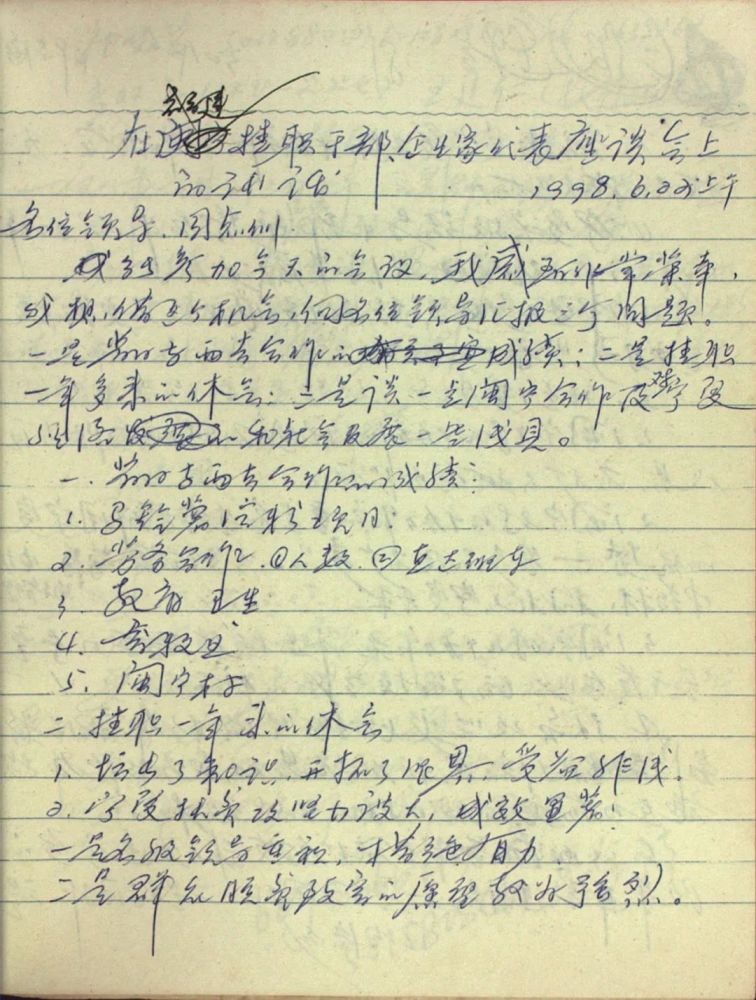 在福建挂职干部、企业家代表座谈会上
的讲话 1998.6.22上午
各位领导、同志们：
能参加今天的会议，我感到非常荣幸，
我想借这个机会，向各位领导汇报三个问题。
一是对口帮扶合作的成绩；二是挂职
一年多来的体会；三是谈一点闽宁合作及对宁夏
经济和社会发展一些浅见。
一、合作的成绩：
1. 马铃薯淀粉项目
2. 劳务合作 ①人数 ②直达班车
3. 教育 卫生
4.
5. 闽宁村
二、挂职一年来的体会
1. 增长了知识，开拓了眼界，受益非浅。
2. 宁夏扶贫攻坚力度大，成效显著：
一是各级领导重视，措施有力，
二是群众脱贫致富的愿望较为强烈。